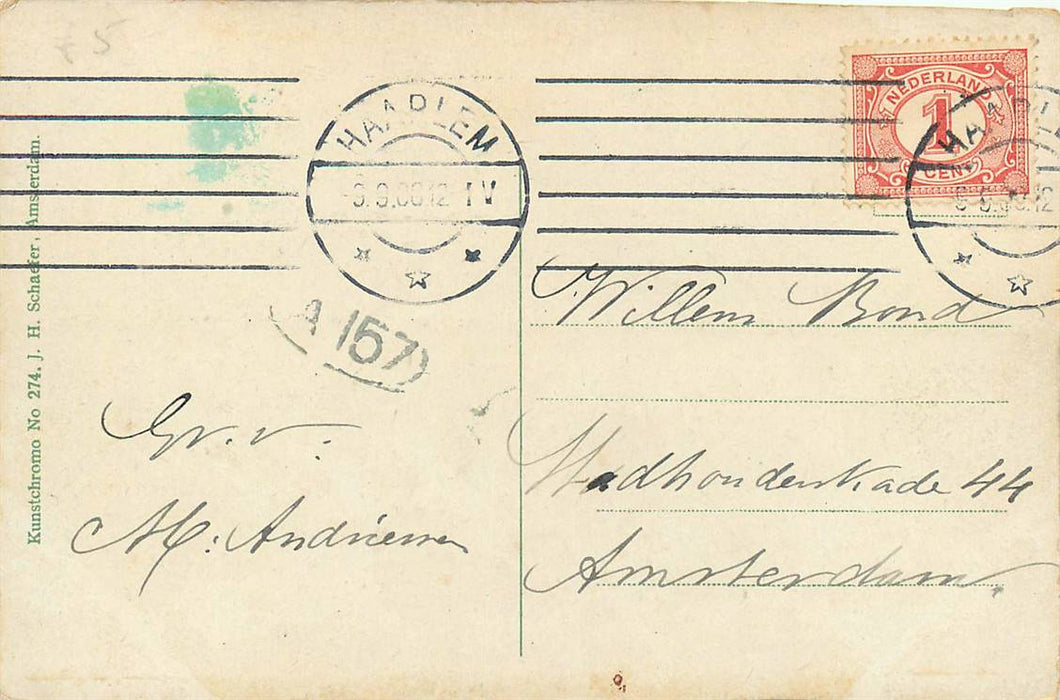 £ 5
HAARLEM
1 V
A 157
Kunstchromo No 274. J. H. Schaefer, Amsterdam.
Gr. v.
M: Andriessen
NEDERLAND
1
CENT
HAARLEM
Willem Bond
Stadhouderskade 44
Amsterdam.